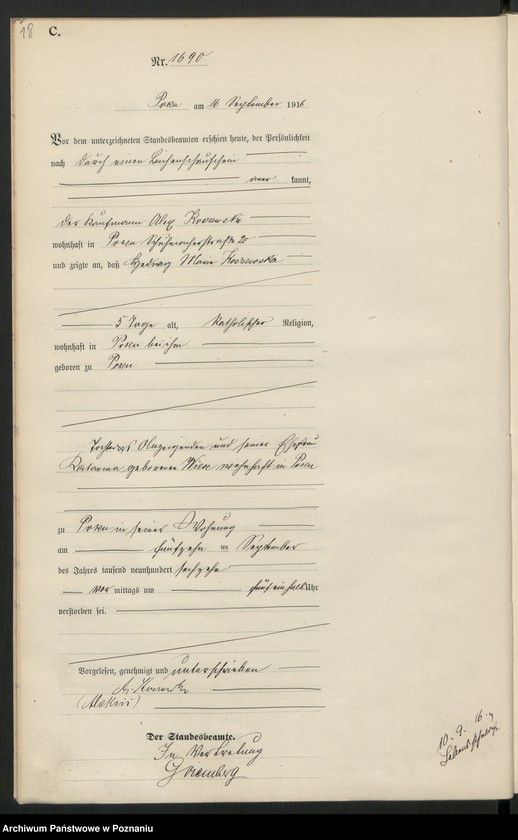 18
C.
Nr. 1690
Posen am 16 September 1916
Vor dem unterzeichneten Standesbeamten erschien heute, der Persönlichkeit
nach durch einen Leichenschauschein
aner kannt,
der Kaufmann Alex
wohnhaft in Posen Schuhmacherstraße 20
und zeigte an, daß Hedwig Maria
5 Tage alt, katholischer Religion,
wohnhaft in Posen bei ihm
geboren zu Posen
Tochter des Anzeigenden und seiner Ehefrau
Katarina geborenen wohnhaft in Posen
zu Posen in seiner Wohnung
am fünfzehn ten September
des Jahres tausend neunhundert sechzehn
vor mittags um fünf ein halb Uhr
verstorben sei.
Vorgelesen, genehmigt und unterschrieben
Der Standesbeamte.
In Vertretung
10. 9. 16
Archiwum Państwowe w Poznaniu